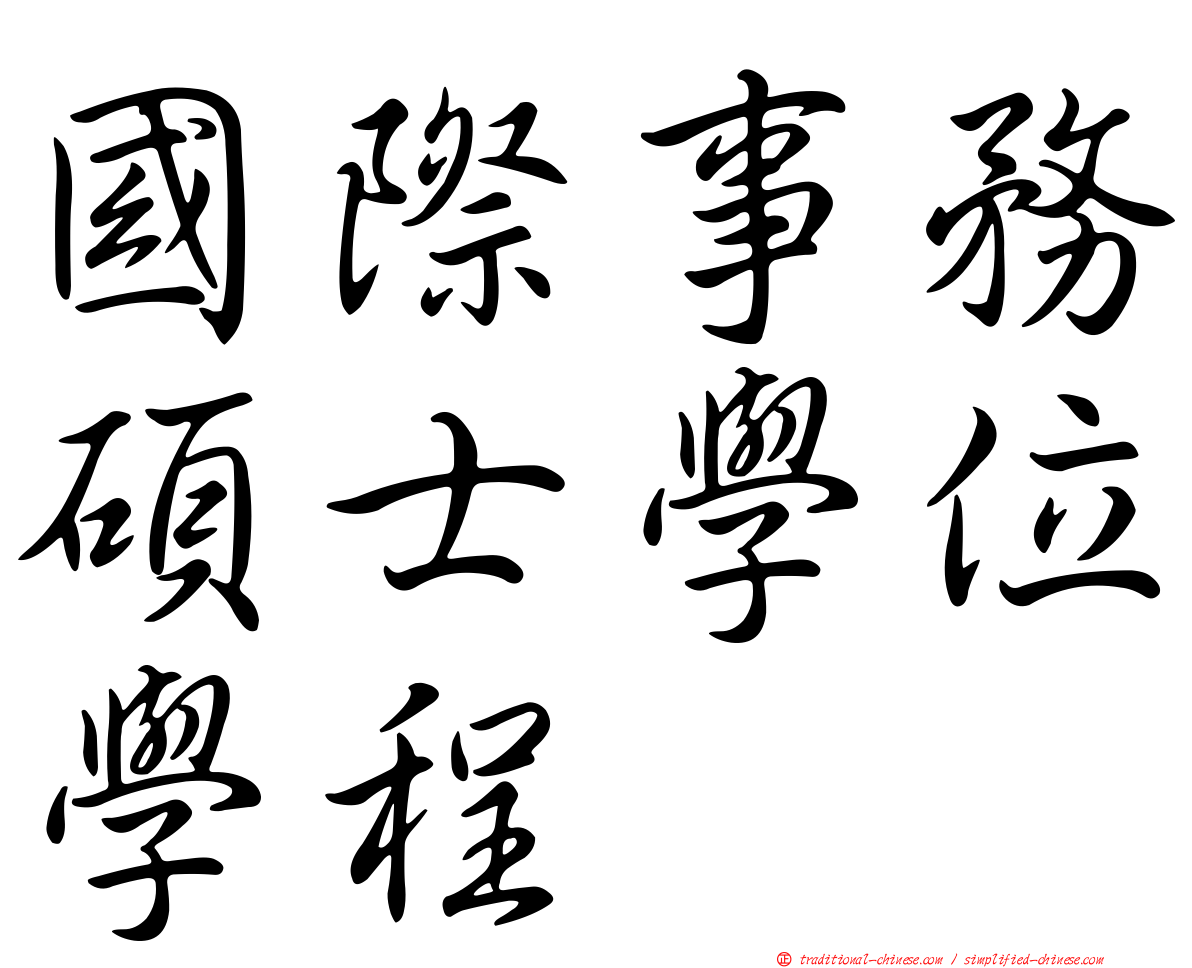 國際事務
碩士學位
學程
㊣ traditional-chinese.com / simplified-chinese.com